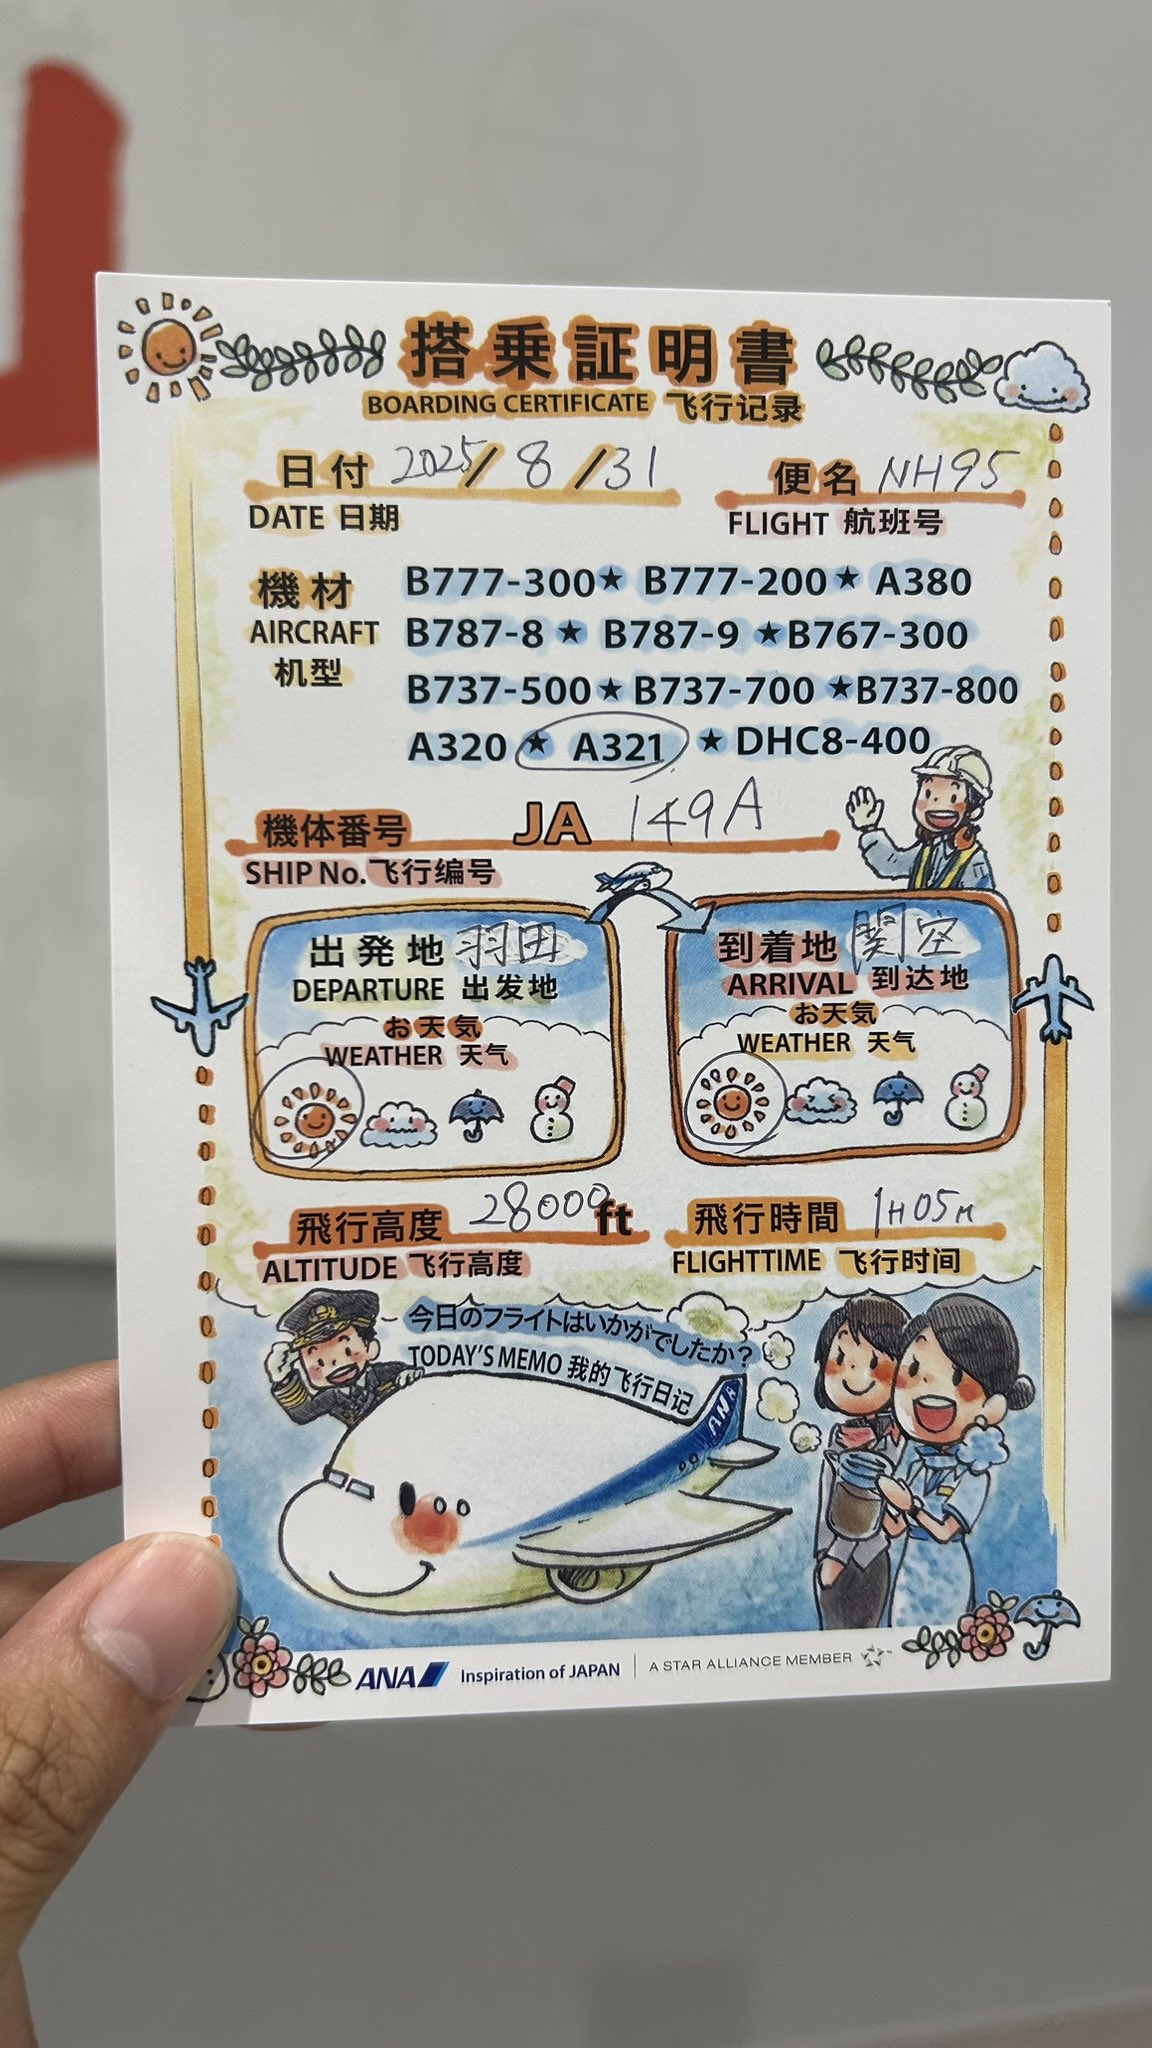 搭乗証明書
BOARDING CERTIFICATE 飞行记录
日付 2025/8/31
DATE 日期
便名 NH95
FLIGHT 航班号
機材
AIRCRAFT
机型
B777-300★ B777-200★ A380
B787-8★ B787-9★B767-300
B737-500★B737-700★B737-800
A320★ A321★DHC8-400
機体番号 JA 149A
SHIP No.飞行编号
出発地 羽田
DEPARTURE 出发地
お天気
WEATHER 天气
到着地 関空
ARRIVAL 到达地
お天気
WEATHER 天气
飛行高度 28000ft
ALTITUDE 飞行高度
飛行時間 1H05M
FLIGHTTIME 飞行时间
今日のフライトはいかがでしたか?
TODAY'S MEMO 我的飞行日记
ANA
ANA Inspiration of JAPAN | A STAR ALLIANCE MEMBER